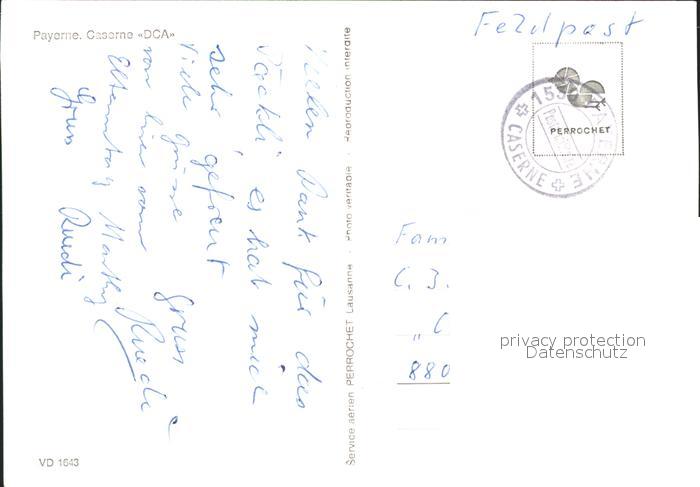 Feldpost
Payerne. Caserne «DCA»
Vielen Dank für das
Päckli es hat mich
sehr gefreut
Viele Grüsse Gruss
von hier vom Ruedi
Elterntag
Gruss Ruedi
Service aérien PERROCHET Lausanne - Photo véritable - Reproduction interdite
PERROCHET
153 PAYERNE
CASERNE
Fam
C. J.
"C
880
privacy protection
Datenschutz
VD 1643